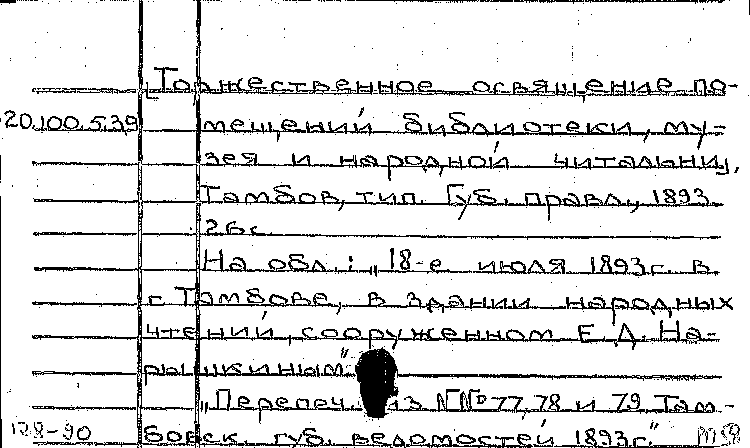 [Торжественное освящение по-
20.100.5.39 мещений библиотеки, му-
зея и народной читальни],
Тамбов, тип. Губ. правл., 1893.
26с.
На обл.: „18-е июля 1893г. в
г. Тамбове, в здании народных
чтений, сооруженном Е.Д. На-
рышкиным".
„Перепеч. из NN° 77, 78 и 79 Там-
128-90 бовск. губ. ведомостей 1893г."